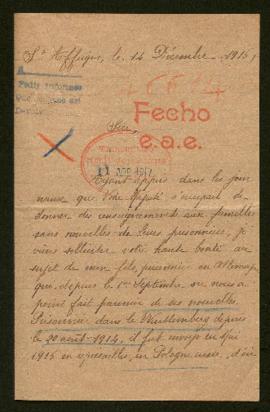 St Affrique, le 14 Décembre 1915,
46614
Fecho
e.a.e.
Sire,
11 1917
Ayant appris dans les jour
naux que Votre Majesté s'occupait de
donner des renseignements aux familles
sans nouvelles de leurs prisonniers, je
viens solliciter votre haute bonté au
sujet de mon fils, prisonnier en Allemagne
que, depuis le 1er Septembre ne nous a
point fait parvenir de ses nouvelles.
Prisonnier dans le Wurtemberg depuis
le 20 août 1914, il fut envoyé en
1915 en, en Pologne russe, d'où